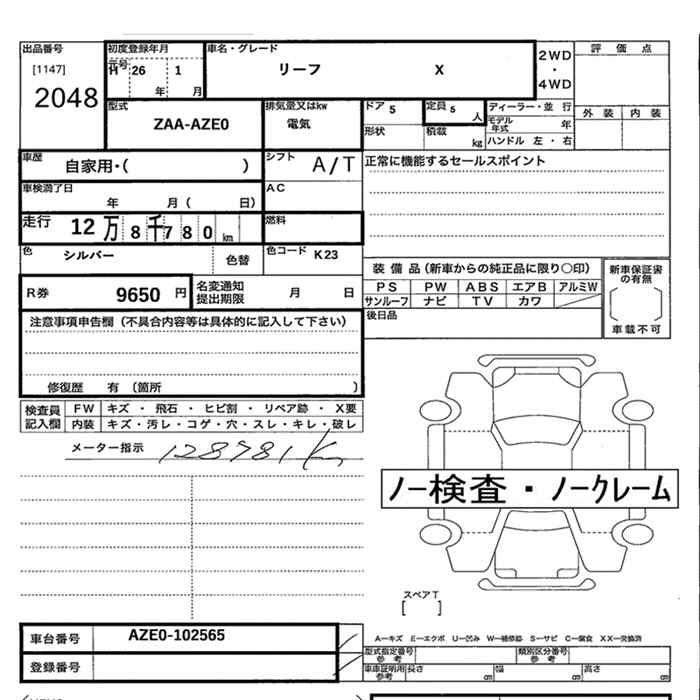 出品番号
[1147]
2048
初度登録年月
元号
H 26 1
年 月
車名・グレード
リーフ X
2WD
・
4WD
評価点
外装 内装
型式
ZAA-AZE0
排気量又はkw
電気
ドア 5
定員 5 人
形状
積載 kg
ディーラー・並 行
モデル年式 年
ハンドル 左・右
車歴
自家用・( )
シフト
A/T
正常に機能するセールスポイント
車検満了日
年 月( 日)
AC
走行
12万8千780km
燃料
色
シルバー
色替
色コード K23
R券 9650 円
名変通知
提出期限
月 日
装備品(新車からの純正品に限り○印)
PS PW ABS エアB アルミW
サンルーフ ナビ TV カワ
後日品
新車保証書
の有無
車載不可
注意事項申告欄(不具合内容等は具体的に記入して下さい)
修復歴 有(箇所 )
検査員
記入欄
FW キズ・飛石・ヒビ割・リペア跡・X要
内装 キズ・汚レ・コゲ・穴・スレ・キレ・破レ
メーター指示 128781K
ノー検査・ノークレーム
スペアT
[ ]
車台番号 AZE0-102565
登録番号
A―キズ E―エクボ U―凹み W―補修跡 S―サビ C―腐食 XX―交換済
型式指定番号
参考
類別区分番号
参考
車車証明用
参考
長さ cm
幅 cm
高さ cm